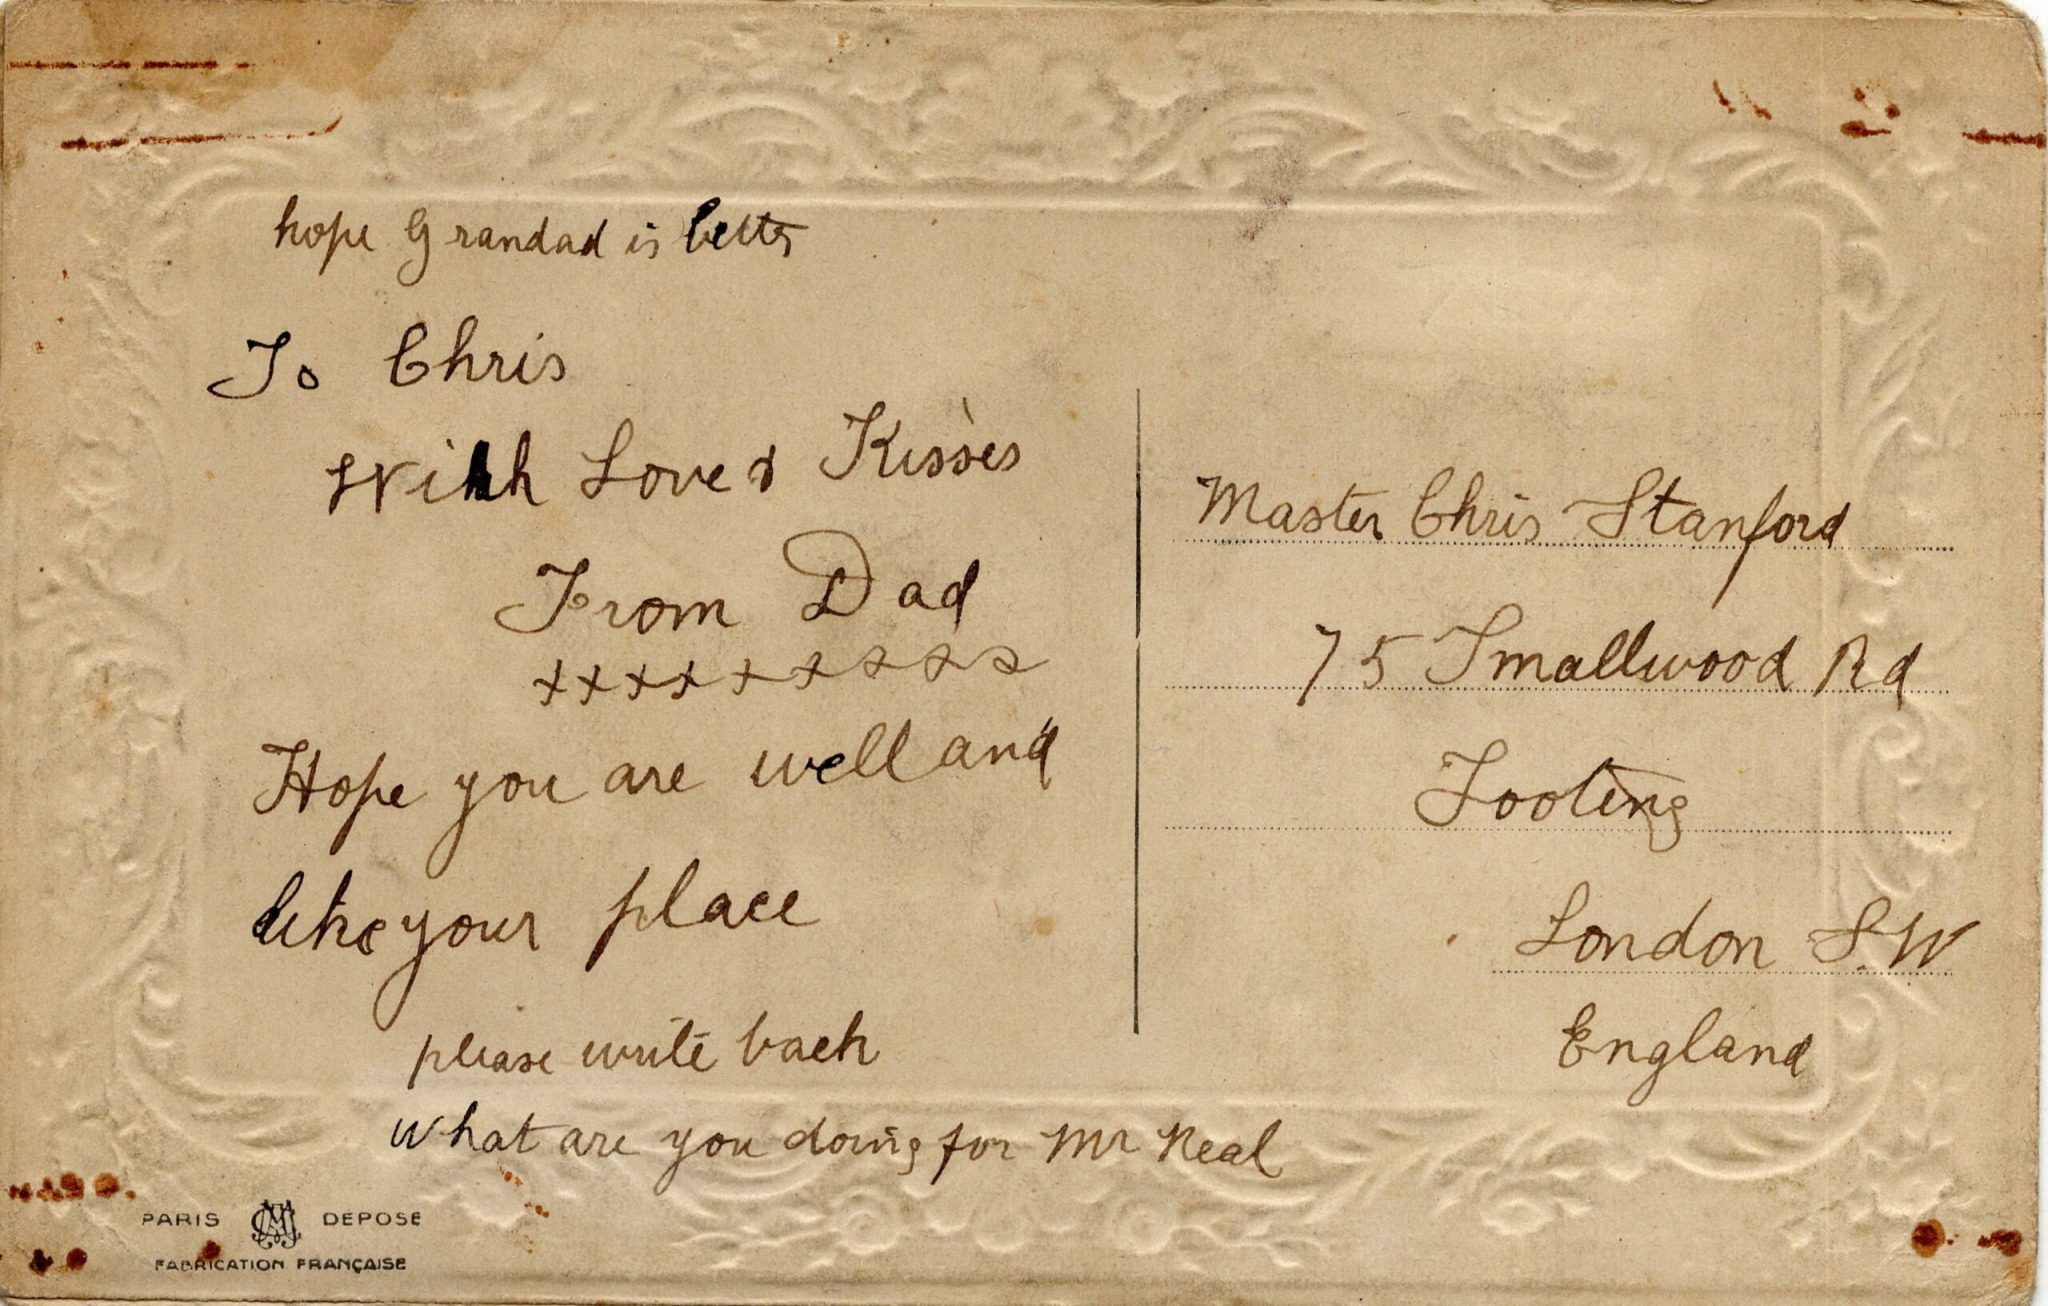 hope Grandad is better
To Chris
With Love & Kisses
From Dad
xxxxxxxxx
Hope you are well and
like your place
please write back
What are you doing for Mr Neal
PARIS DEPOSE
FABRICATION FRANÇAISE
Master Chris Stanford
75 Smallwood Rd
Tooting
London S.W
England